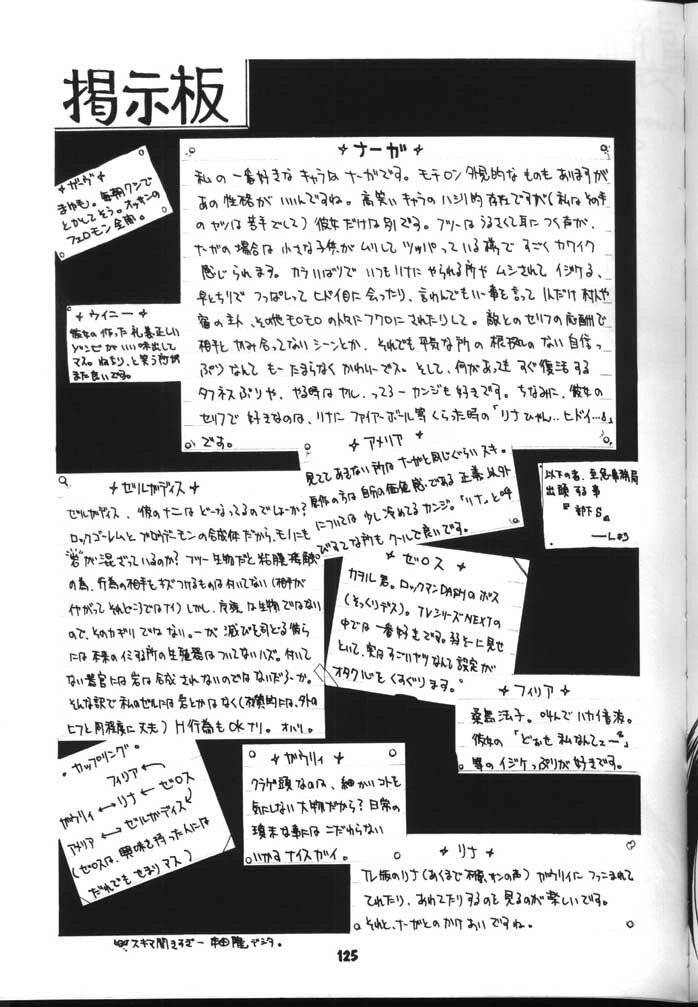 掲示板
✦ナーガ✦
私の一番好きなキャラはナーガです。モチロン外見的なものもありますが
あの性格がいいんですね。高笑いキャラのハシリ的存在ですが(私はその手
のヤツは苦手でして)彼女だけは別です。フツーはうるさくて耳につく声が、
ナーガの場合は小さな子供がムリしてツッパっている様ですごくカワイク
感じられます。カラいばりでいつもリナにやられる所やムシされてイジケる、
早とちりでつっぱしってヒドイ目に会ったり、言わんでもいー事を言って
宿の主人、その他モロモロの人々にフクロにされたりして。敵とのセリフの応酬で
相手とかみ合ってないシーンとか、それでも平気な所の根拠のない自信っ
ぷりなんてもーたまらなくかわいーでス。そして、何があってもすぐ復活する
タフネスぶりや、やる時はヤル、ってろーカンジも好きです。ちなみに、彼女の
セリフで好きなのは、リナにファイアーボール等くらった時の「リナひゃん…ヒドイ…」
です。
毎朝クンで
とかしてそう。スッポンの
フェロモン全開。
✦ウイニー✦
彼女の作った礼儀正しい
ゾンビがいい味出して
マス。ねちり、と笑う所が
また良いです。
✦アメリア✦
見ててあきない所はナーガと同じぐらいスキ。
原作の方は自分の価値感である正義以外
については少し冷めてるカンジ。「リナ」と呼
びすてな所もクールで良いです。
以下の者、至急事務局
出頭する事
『部下S』
✦ゼルガディス✦
ゼルガディス、彼のナニはどーなってるのでしょーか?
ロックゴーレムとブロウデーモンの合成体だから、モノにも
"岩"が混ざっているのか? フツー生物だと粘膜接触
の為、行為の相手をキズつけるものは付いてない(相手が
イヤがってそれどころではナイ)しかし、
ので、そのカギリではない。一が滅びを司どる彼ら
には本来のイミする所の生殖器はついてないハズ。付いて
ない器官には岩は合成されないのではないだろーか。
そんな訳で私のゼルには岩とかはなく(材質的には、外の
ヒフと同程度に丈夫)H行為もOKナリ。オハリ。
✦ゼロス
カヲル君。ロックマンDASHのボス
(そっくりデス)。TVシリーズNEXTの
中では一番好きです。弱そーに見せ
といて、実はすごいヤツなんて設定が
オタク心をくすぐります。
✦フィリア✦
桑島法子。叫んでハカイ音波。
彼女の「どぉせ私なんてェ〜」
等のイジケっぷりが好きです。
・カップリング・
フィリア ←
ガウリィ ←→ リナ ← ゼロス
アメリア ←→ ゼルガディス
(ゼロスは、興味を持った人には
だれでもせまりマス)
✦ガウリィ✦
クラゲ頭なのは、細かいコトを
気にしない大物だから? 日常の
瑣末な事にはこだわらない
いかすナイスガイ。
✦リナ
TV版のリナ(あくまで本編、
てれたり、あわてたりするのを見るのが楽しいです。
それと、ナーガとのかけあいですね。
125